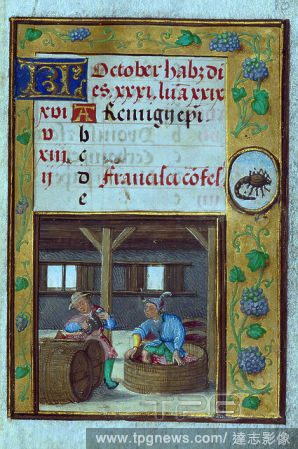 KL October habʒ di
es. xxxi. lūa xxix
xvi A Remigij ep̄i
b
xiii c
ii d Francisci cōfes
e
TPG
www.tpgnews.com/達志影像